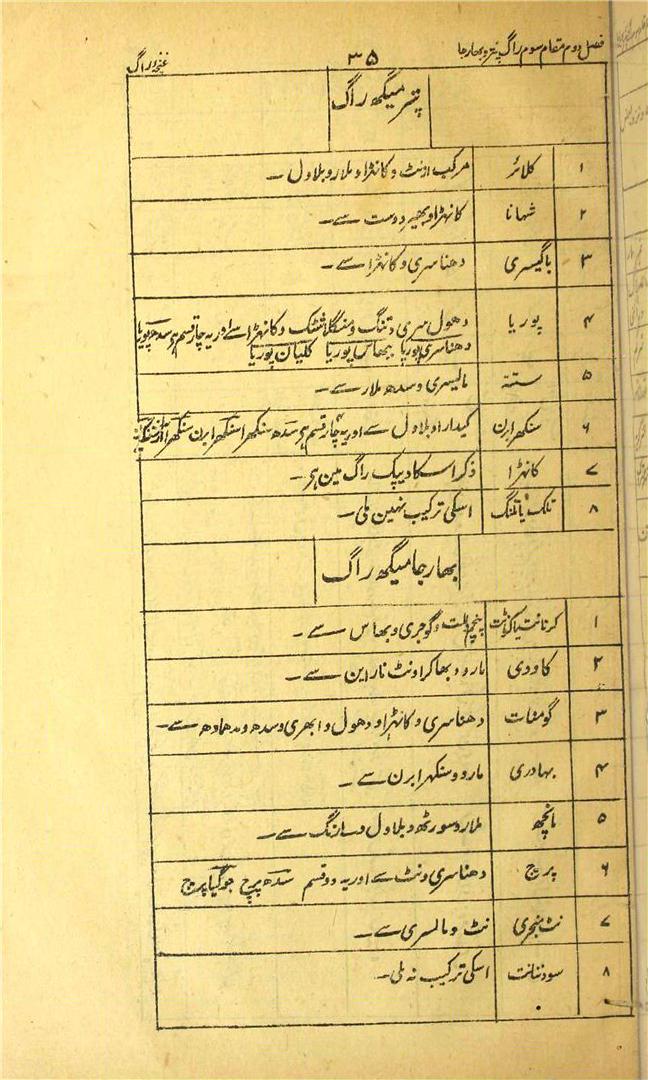 فصل دوم مقام سوم راگ پتر و بھارجا
۳۵
غنچہ راگ
پتر میگھ راگ
۱ کلائر مرکب از نٹ و کانہڑا و ملار و بلاول ـ
۲ شہانا کانہڑا و پھیر دوست سے ـ
۳ باگیسری دھناسری و کانہڑا سے ـ
۴ پوریا دھول سری و تنگ و منگلاشٹک و کانہڑا سے اور یہ چار قسم ہے سدھ پوریا
دھناسری پوریا ببھاس پوریا کلیان پوریا
۵ ستہ مالیسری و سدھ ملار سے ـ
۶ سنکھرابرن کیدارا و بلاول سے اور یہ چار قسم ہے سدھ سنکھرا سنکھرا برن
۷ کانہڑا ذکر اسکا دیپک راگ مین ہے ـ
۸ تلک یا تلنگ اسکی ترکیب نہین ملی ـ
بھارجا میگھ راگ
۱ کرنانت یا کرناٹ پنچم و للت و گوجری و بھاس سے ـ
۲ کاودی مارو و بھاکرا و نٹ نارین سے ـ
۳ گومنات دھناسری و کانہڑا و دھول و ابھری و سدھ و مدھمادھ سے ـ
۴ بہادری مارو و سنکہرابرن سے ـ
۵ مانجھ ملار و سورٹھ و بلاول و سارنگ سے ـ
۶ پرج دھناسری و نٹ سے اور یہ دو قسم سدھ پرج جوگیا پرج
۷ نٹ منجری نٹ و مالسری سے ـ
۸ سودنانت اسکی ترکیب نہ ملی ـ